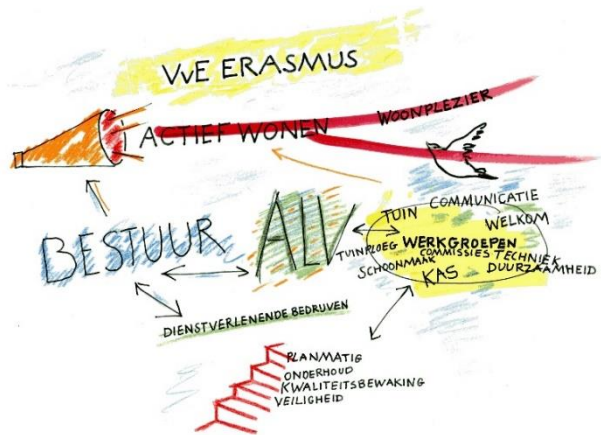 VvE ERASMUS
WOONPLEZIER
ACTIEF WONEN
BESTUUR
ALV
TUIN
COMMUNICATIE
WELKOM
TUINPLOEG
WERKGROEPEN
COMMISSIES
TECHNIEK
SCHOONMAAK
KAS
DUURZAAMHEID
DIENSTVERLENENDE BEDRIJVEN
PLANMATIG
ONDERHOUD
KWALITEITSBEWAKING
VEILIGHEID